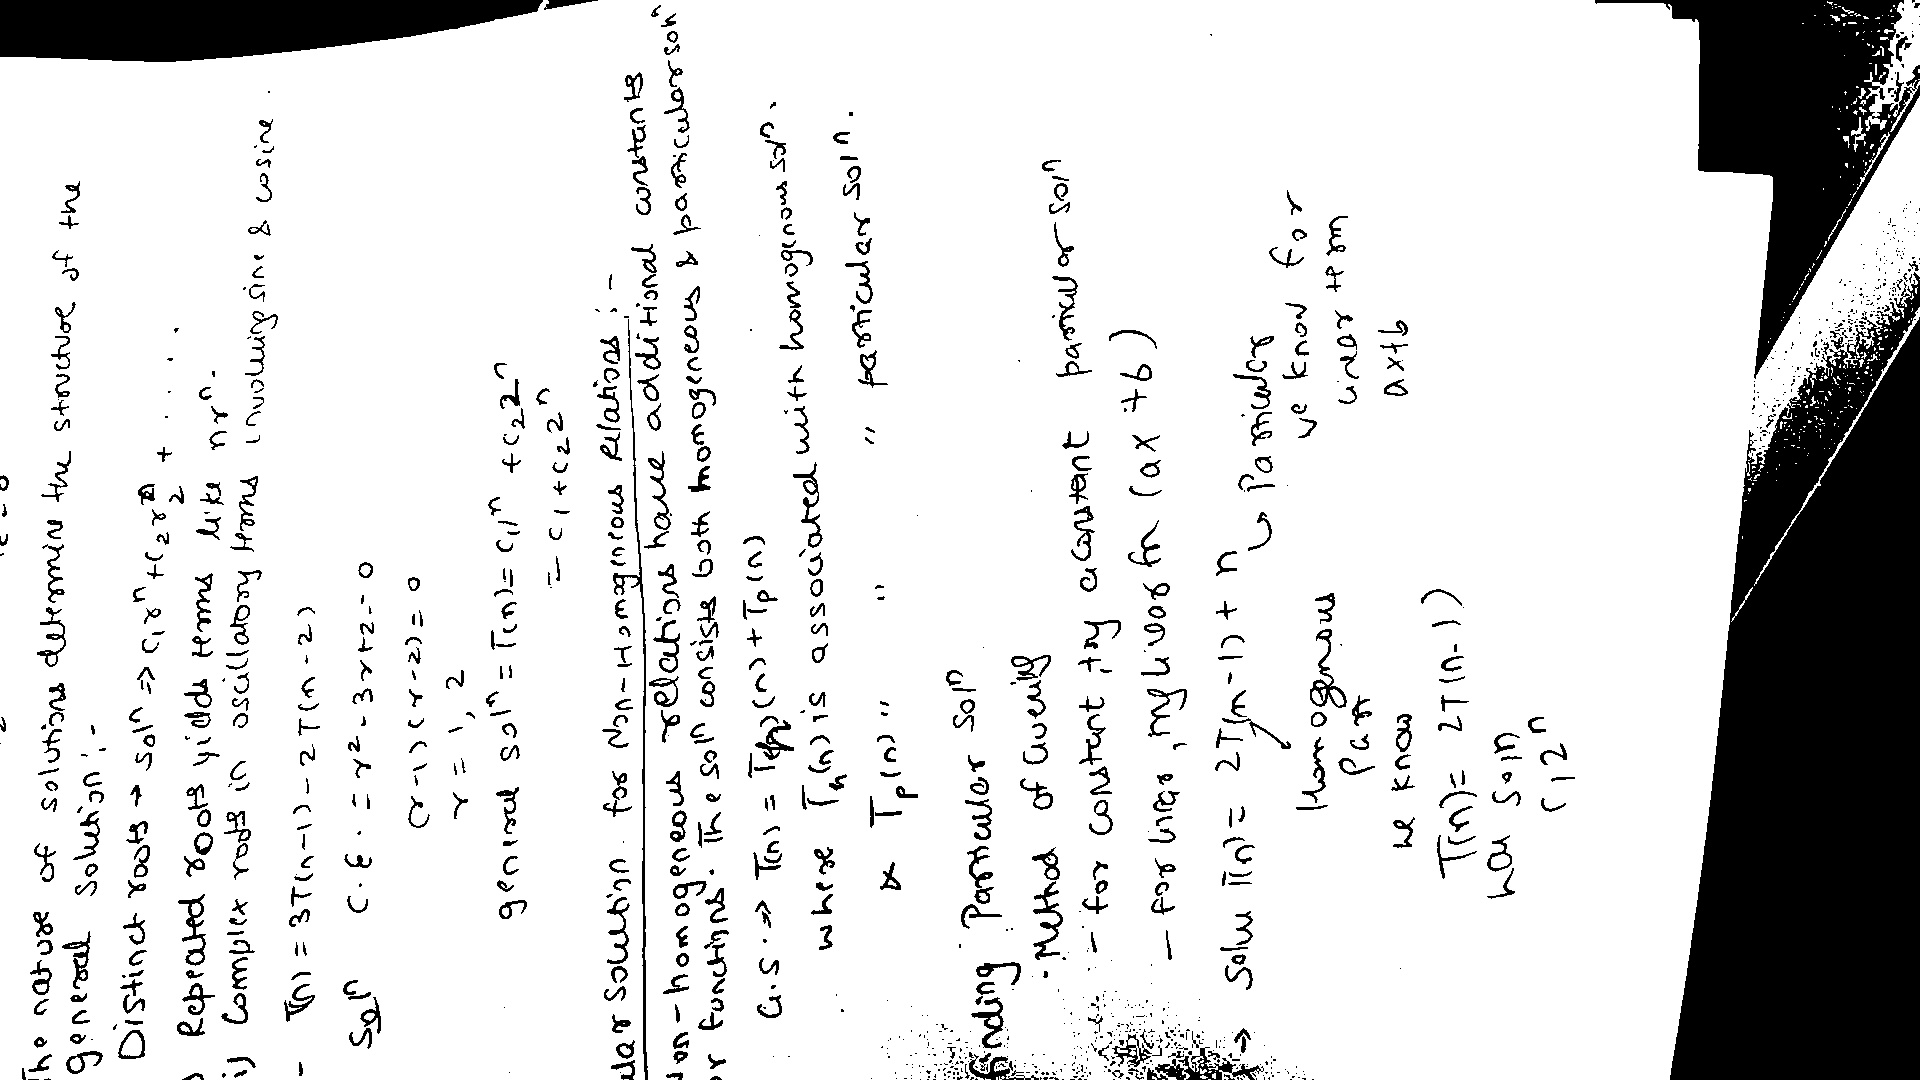 The nature of solutions determine the structure of the
general solution :-
Distinct roots → solⁿ => c₁rⁿ + c₂r₂ⁿ + . . . .
Repeated roots yields terms like nrⁿ.
Complex roots in oscillatory terms involving sine & cosine.
- T(n) = 3T(n-1) - 2T(n-2)
Solⁿ C.E. = r² - 3r + 2 = 0
(r-1)(r-2) = 0
r = 1, 2
general solⁿ = T(n) = c₁1ⁿ + c₂2ⁿ
= c₁ + c₂2ⁿ
ular solution for Non-Homogeneous Relations :-
Non-homogeneous relations have additional constants
or functions. The solⁿ consists both homogeneous & particular solⁿ
G.S. => T(n) = Th(n) + Tp(n)
where Th(n) is associated with homogenous solⁿ.
& Tp(n) " " " particular solⁿ.
finding Particular solⁿ
. Method of
- for constant, try a constant particular solⁿ
- for linear, try linear fn (ax + b)
→ Solve T(n) = 2T(n-1) + n
↳ Particular
we know for
linear term
ax+b
Homogenous
Part
we know
T(n) = 2T(n-1)
has soln
c₁2ⁿ